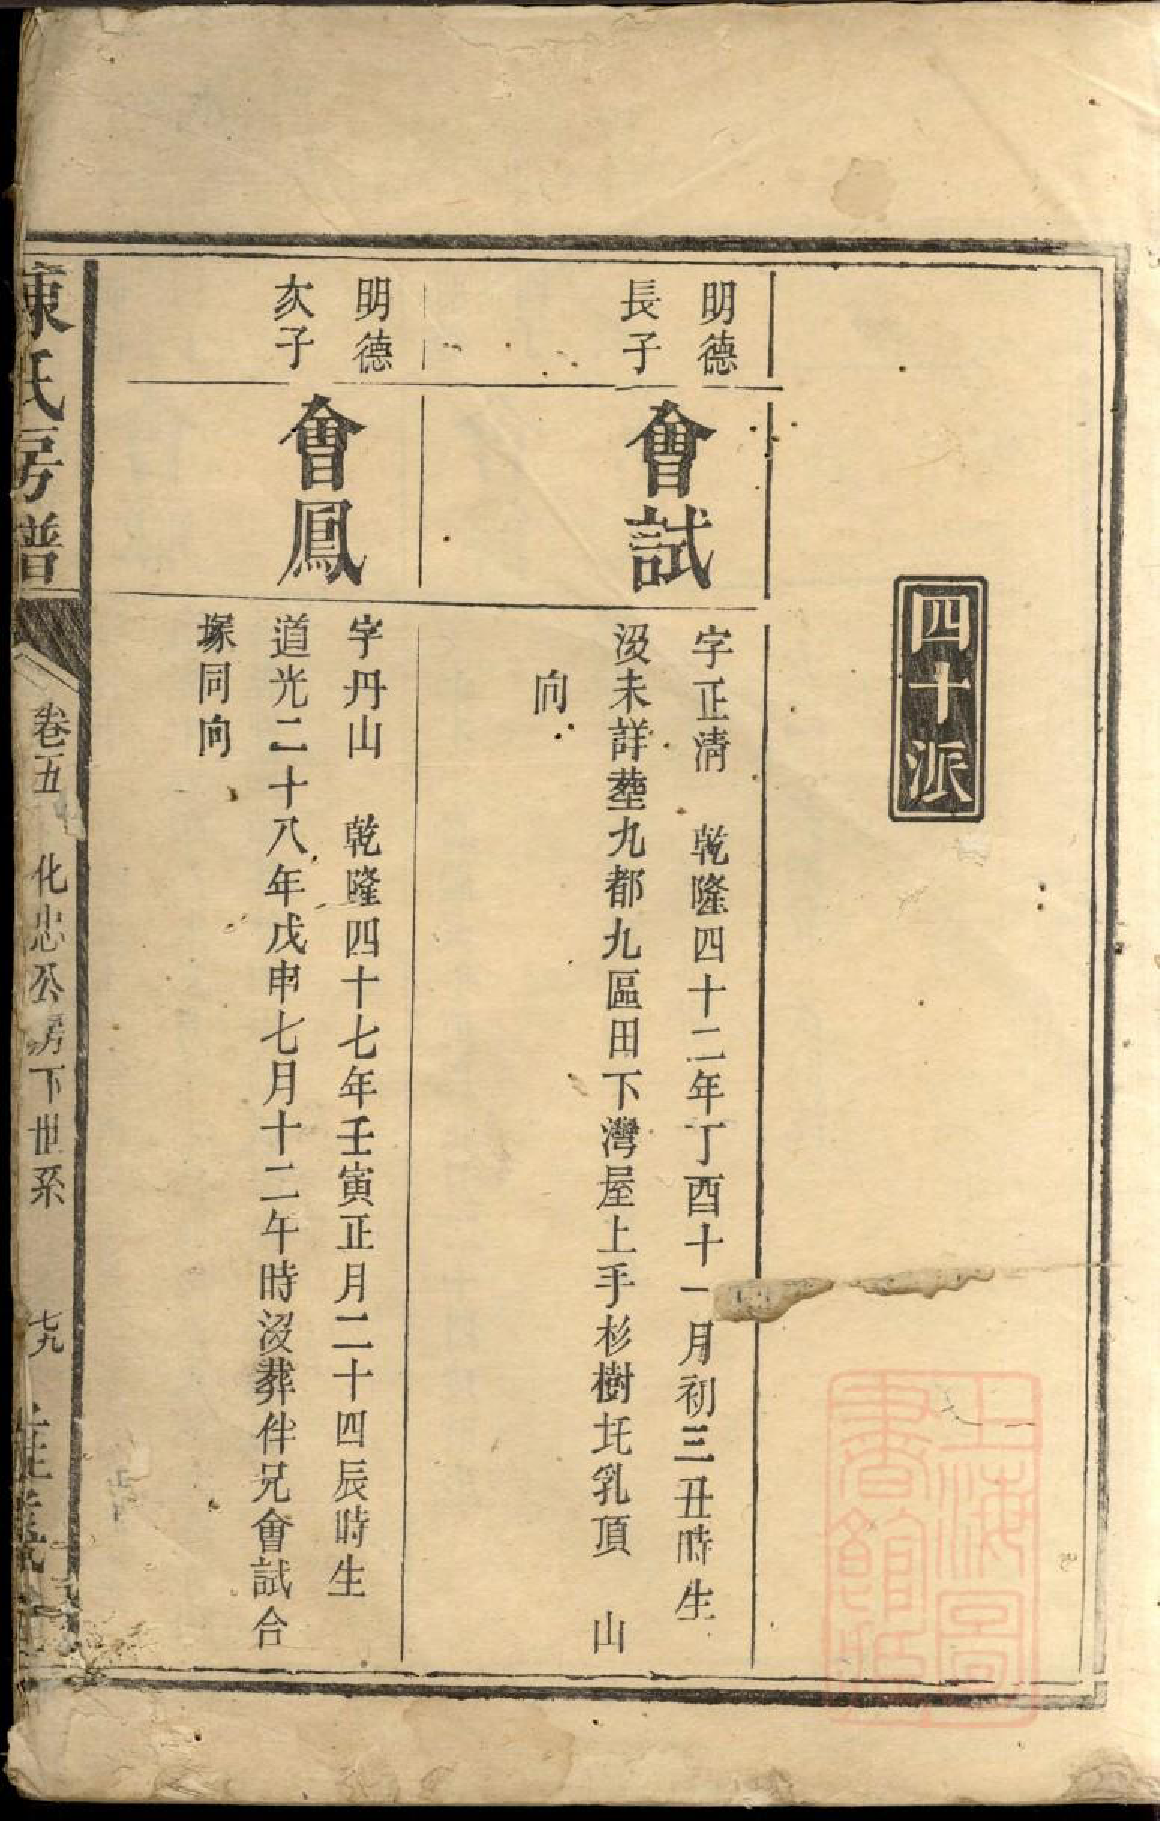 四十派
明德
長子
會試
字正淸 乾隆四十二年丁酉十一月初三丑時生
沒未詳塟九都九區田下灣屋上手杉樹圫乳頂 山
向
明德
次子
會鳳
字丹山 乾隆四十七年壬寅正月二十四辰時生
道光二十八年戊申七月十二午時沒葬伴兄會試合
塚同向
陳氏房譜
卷五 化忠公房下世系
上海圖
書館藏